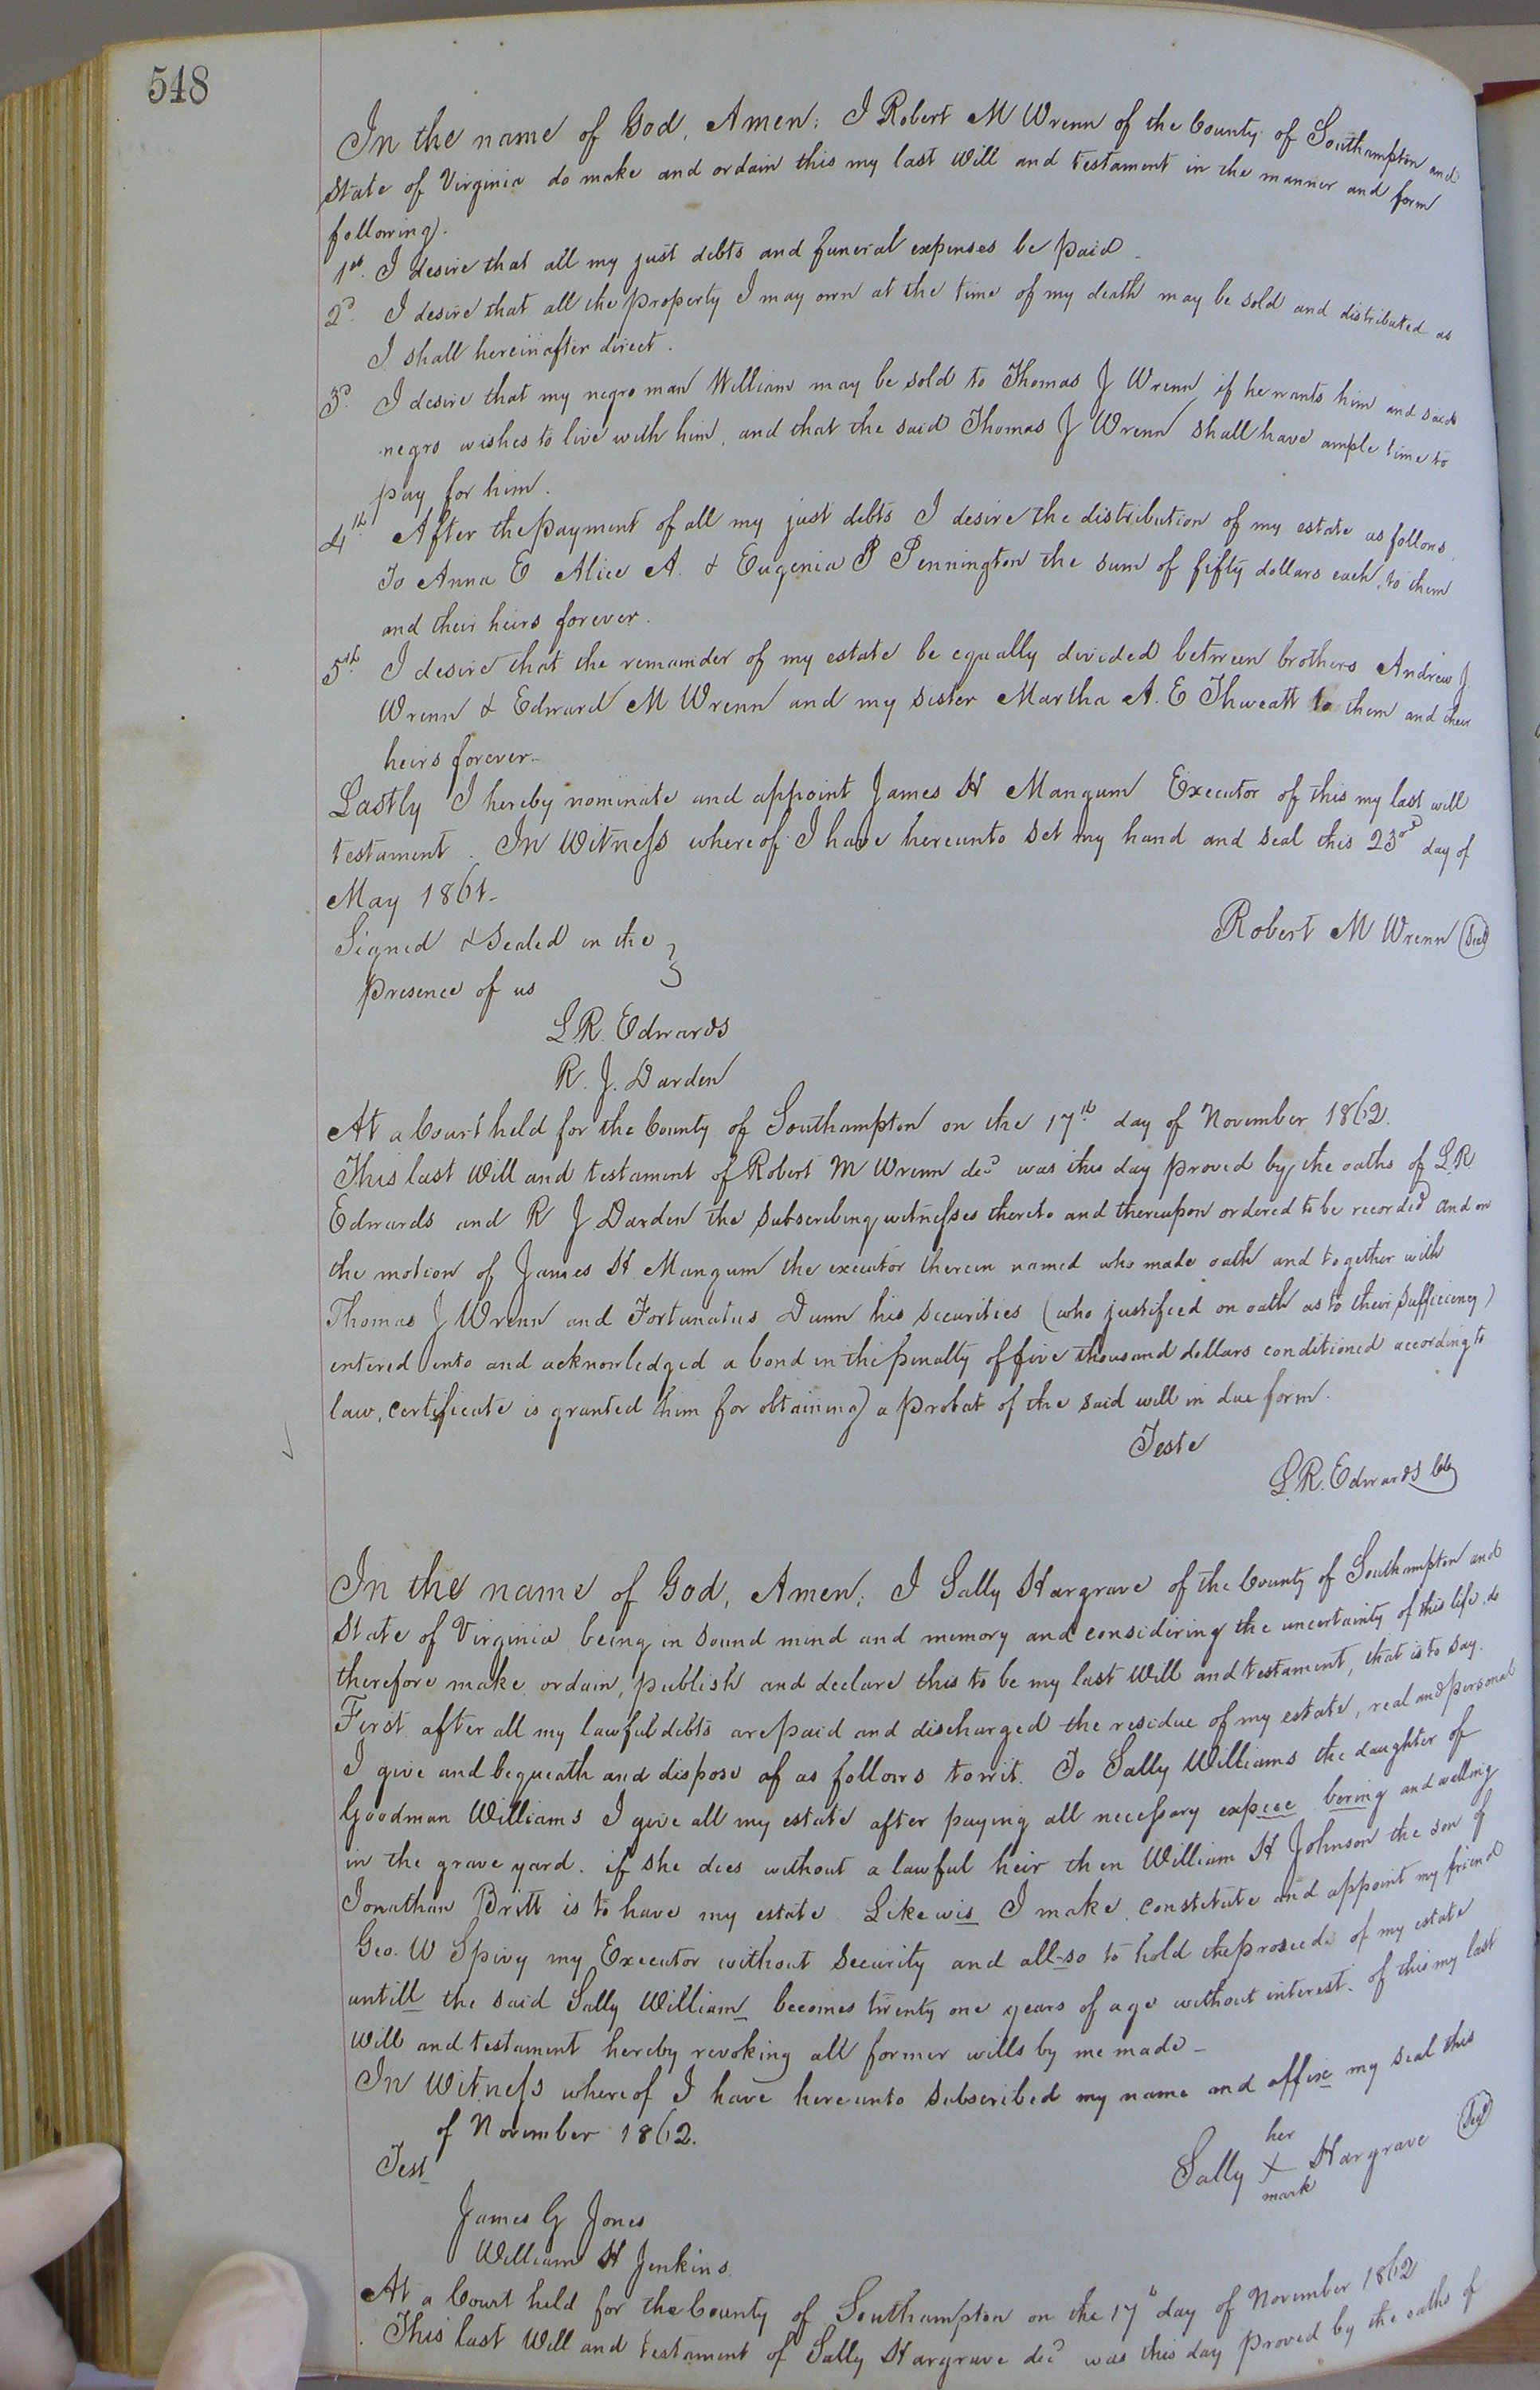 548
In the name of God, Amen: I Robert M Wrenn of the County of Southampton and
State of Virginia do make and ordain this my last Will and testament in the manner and form
following.
1st. I desire that all my just debts and funeral expenses be paid.
2d. I desire that all the property I may own at the time of my death may be sold and distributed as
I shall hereinafter direct.
3d. I desire that my negro man William may be sold to Thomas J Wrenn if he wants him and said
negro wishes to live with him, and that the said Thomas J Wrenn shall have ample time to
pay for him.
4th. After the payment of all my just debts I desire the distribution of my estate as follows,
To Anna E Alice A. & Eugenia P Pennington the sum of fifty dollars each, to them
and their heirs forever.
5th. I desire that the remainder of my estate be equally divided between brothers Andrew J.
Wrenn & Edward M Wrenn and my sister Martha A. E Thweatt to them and their
heirs forever.
Lastly I hereby nominate and appoint James H Mangum Executor of this my last will
testament. In Witness whereof I have hereunto set my hand and seal this 23rd day of
May 1861.
Robert M Wrenn (Seal)
Signed & Sealed in the }
presence of us
L. R. Edwards
R. J. Darden
At a Court held for the County of Southampton on the 17th day of November 1862.
This last Will and testament of Robert M Wrenn decd was this day proved by the oaths of L. R.
Edwards and R J Darden the subscribing witnesses thereto and thereupon ordered to be recorded and on
the motion of James H Mangum the executor therein named who made oath and together with
Thomas J Wrenn and Fortunatus Dunn his securities (who justified on oath as to their sufficiency)
entered into and acknowledged a bond in the penalty of five thousand dollars conditioned according to
law, certificate is granted him for obtaining a probat of the said will in due form.
Teste
L. R. Edwards Clk
In the name of God, Amen; I Sally Hargrave of the County of Southampton and
State of Virginia being in sound mind and memory and considering the uncertainty of this life, do
therefore make ordain, publish and declare this to be my last Will and testament, that is to say.
First after all my lawful debts are paid and discharged the residue of my estate, real and personal
I give and bequeath and dispose of as follows to wit. To Sally Williams the daughter of
Goodman Williams I give all my estate after paying all necessary expice bering and welling
in the grave yard. if she dies without a lawful heir then William H Johnson the son of
Jonathan Britt is to have my estate Likewis I make, constitute and appoint my friend
Geo. W Spivy my Executor without Security and all-so to hold the proseeds of my estate
untill the said Sally William becomes twenty one years of age without interest. of this my last
Will and testament hereby revoking all former wills by me made -
In Witness whereof I have hereunto subscribed my name and affixe my seal this
of November 1862.
her
Sally X Hargrave (Seal)
mark
Test
James G Jones
William H Jenkins.
At a Court held for the County of Southampton on the 17th day of November 1862
This last Will and testament of Sally Hargrave decd was this day proved by the oaths of